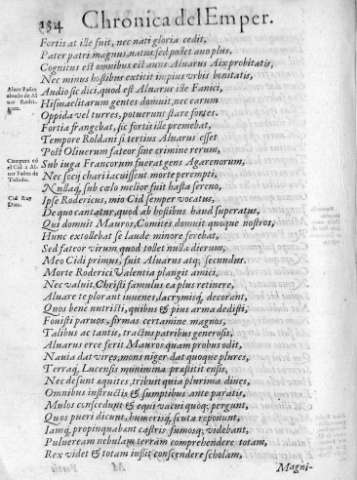 154 Chronica del Emper.
Fortis at ille fuit, nec nati gloria cedit,
Pater patri magnus, natus sed pollet auo plus,
Cognitus est omnibus est auus Aluarus Aix probitatis,
Nec minus hostibus extitit impius vrbis bonitatis,
Audio sic dici, quod est Aluarus ille Fanici,
Hismaelitarum gentes domuit, nec earum
Oppida vel turres, potuerunt stare fortes.
Fortia frangebat, sic fortis ille premebat,
Tempore Roldani si tertius Aluarus esset
Post Oliuerum fateor sine crimine rerum,
Sub iuga Francorum fuerat gens Agarenorum,
Nec socij chari iacuissent morte perempti,
Nullaq, sub cœlo melior fuit hasta sereno,
Ipse Rodericus, mio Cid semper vocatus,
De quo cantatur, quod ab hostibus haud superatus,
Qui domuit Mauros, Comites domuit quoque nostros,
Hunc extollebat se laude minore ferebat,
Sed fateor virum, quod tollet nulla dierum,
Meo Cidi primus, fuit Aluarus atq; secundus.
Morte Roderici Valentia plangit amici,
Nec valuit Christi famulus ea plus retinere,
Aluare te plorant iuuenes, lacrymisq, decorant,
Quos bene nutristi, quibus & pius arma dedisti,
Fouisti paruos, firmas certamine magnos,
Talibus ac tantis, tractus patribus generosis,
Aluarus ecce ferit Mauros, quam probus odit,
Nauia dat vires, mons niger dat quoque plures,
Terraq, Lucensis minima præstitit ensis,
Nec desunt æquites, tribuit quia plurima diues,
Omnibus instructis & sumptibus ante paratis,
Mulos conscedunt & equi vacui quoq; pergunt,
Quos pueri ducunt, humerisq, scuta reponunt,
Iamq, propinquabant castris fumosq, videbant,
Puluream nebulam terram comprehendere totam,
Rex videt & totam iussit conscendere scholam,
Magni-
Cid Ruy
Diez.